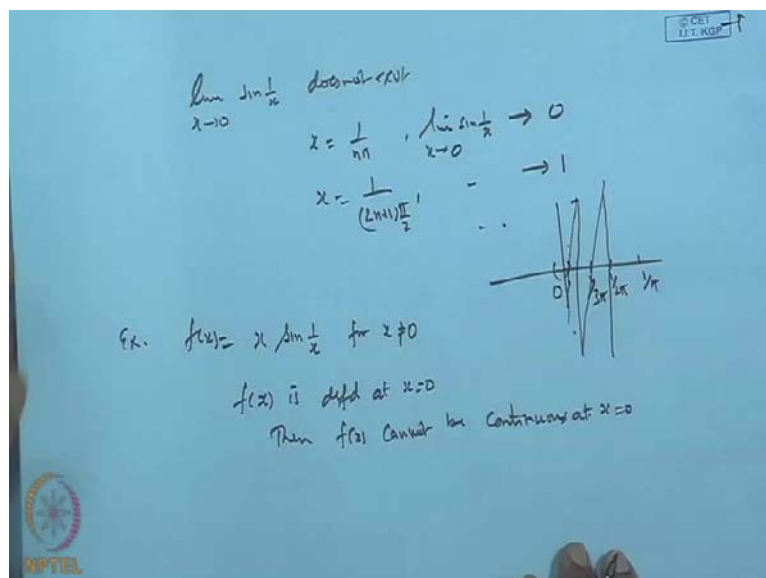 © CET
I.I.T. KGP
lim sin 1/x does not exist
x→0
x = 1/nπ , lim sin 1/x → 0
x→0
x = 1/(2n+1)π/2 , - → 1
0 1/3π 1/2π 1/π
Ex. f(x) = x sin 1/x for x ≠ 0
f(x) is defd at x=0
Then f(x) cannot be continuous at x=0
NPTEL